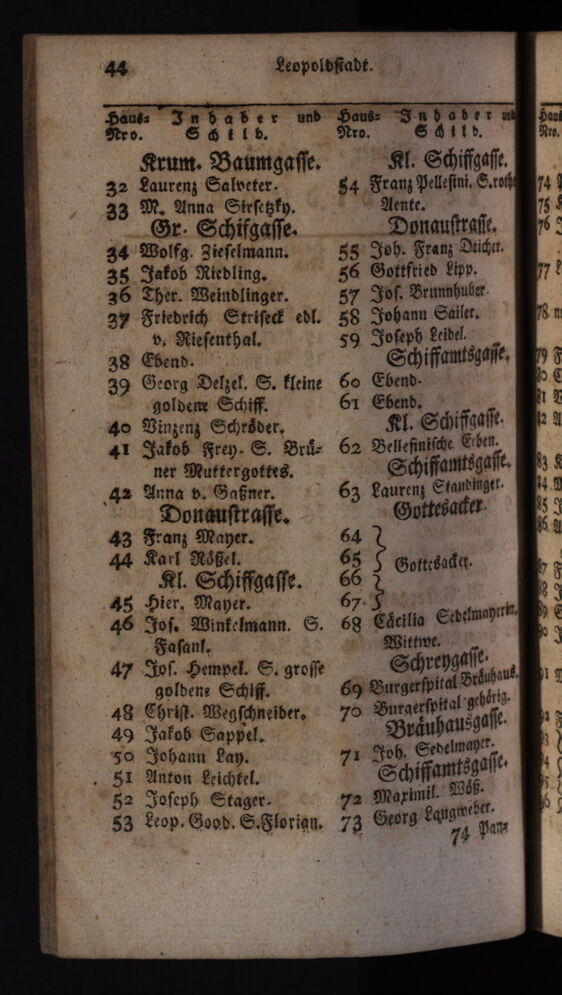 44 Leopoldstadt.
Haus= Inhaber und
Nro. Schild.
Krum. Baumgasse.
32 Laurenz Salveter.
33 M. Anna Sirsetzky.
Gr. Schifgasse.
34 Wolfg. Zieselmann.
35 Jakob Riedling.
36 Ther. Weindlinger.
37 Friedrich Striseck edl.
v. Riesenthal.
38 Ebend.
39 Georg Delzel. S. kleine
goldene Schiff.
40 Vinzenz Schröder.
41 Jakob Frey. S. Brü=
ner Muttergottes.
42 Anna v. Gaßner.
Donaustrasse.
43 Franz Mayer.
44 Karl Rößel.
Kl. Schiffgasse.
45 Hier. Mayer.
46 Jos. Winkelmann. S.
Fasanl.
47 Jos. Hempel. S. grosse
goldene Schiff.
48 Christ. Wegschneider.
49 Jakob Sappel.
50 Johann Lay.
51 Anton Leichtel.
52 Joseph Stager.
53 Leop. Good. S. Florian.
Haus= Inhaber und
Nro. Schild.
Kl. Schiffgasse.
54 Franz Pellesini. S. rothe
Aente.
Donaustrasse.
55 Joh. Franz Deicher.
56 Gottfried Lipp.
57 Jos. Brunnhuber.
58 Johann Sailer.
59 Joseph Leidel.
Schiffamtsgasse.
60 Ebend.
61 Ebend.
Kl. Schiffgasse.
62 Bellesinische Erben.
Schiffamtsgasse.
63 Laurenz Staudinger.
Gottesacker.
64
65 Gottesacker.
66
67.
68 Cäcilia Sedelmayerin,
Wittwe.
Schreygasse.
69 Burgerspital Bräuhaus.
70 Burgerspital gehörig.
Bräuhausgasse.
71 Joh. Sedelmayer.
Schiffamtsgasse.
72 Maximil. Wöß.
73 Georg Langweber.
74 Pan=